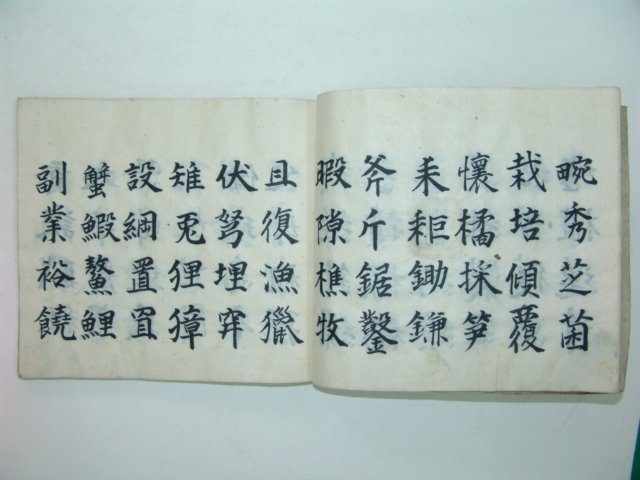 畹秀芝菌
栽培傾覆
懷橘採笋
耒耟鋤鎌
斧斤鋸鑿
暇隙樵牧
且復漁獵
伏弩埋穽
雉兎狸獐
設綱置罝
蟹鰕鰲鯉
副業裕饒